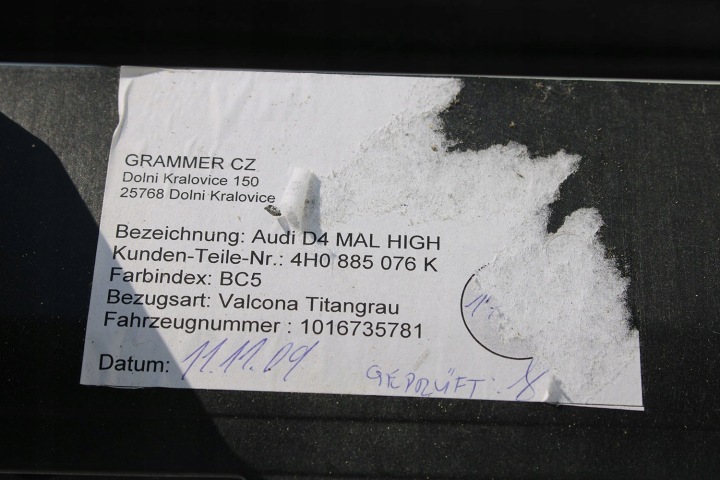 GRAMMER CZ
Dolni Kralovice 150
25768 Dolni Kralovice
Bezeichnung: Audi D4 MAL HIGH
Kunden-Teile-Nr.: 4H0 885 076 K
Farbindex: BC5
Bezugsart: Valcona Titangrau
Fahrzeugnummer : 1016735781
Datum: 11.11.09
GEPRÜFT: